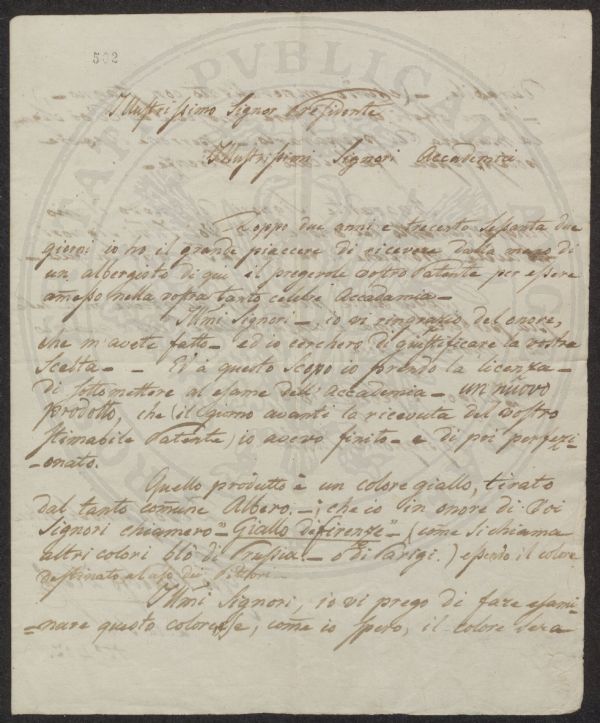 502
Illustrissimo Signor Presidente
Illustrissimi Signori Accademici
Doppo due anni e trecento sesanta due
giorni io ho il grande piaccere di ricevere dalla mano di
un albergisto di qui il pregevole vostro Patente per essere
amesso nella vostra tanto celebre Accadamia –
Illmi Signori –, io vi ringrazio del onore,
che m'avete fatto – ed io cercherò di giustificare la vostre
Scelta – – Ed à questo Scopo io prendo la licenza –
di sottomettere al esame dell'Accademia – un nuovo
prodotto, che (il Giorno avanti la ricevuta del vostro
stimabile Patente) io avevo finito – e di poi perfezi-
-onato.
Quello produtto è un colore giallo, tirato
dal tanto comune Albero, –; che io in onore di Voi
Signori chiamerò "Giallo di firenze" – (come si chiama
altri colori blo di Prussia – o di Parigi.) essendo il colore
destinato al uso dei Pittori –
Illmi Signori, io vi prego di fare esami-
-nare questo colore, e, come io spero, il colore sera